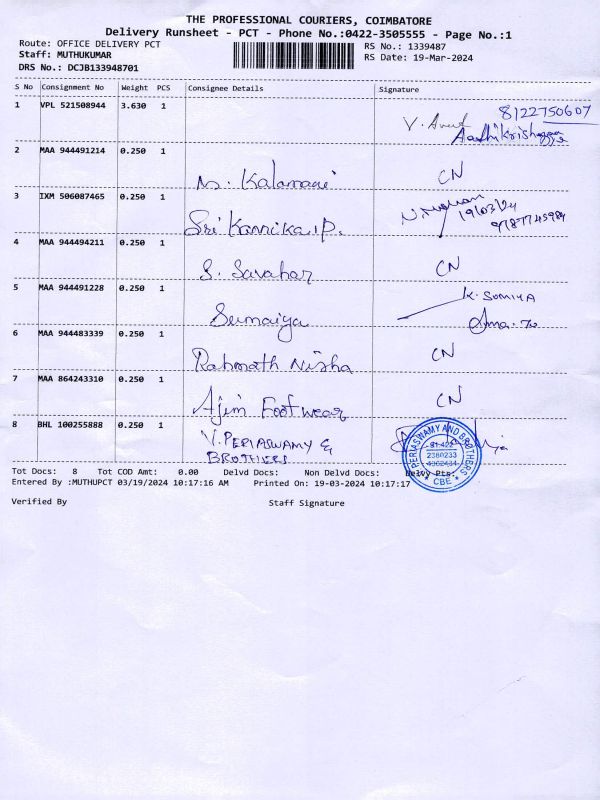 THE PROFESSIONAL COURIERS, COIMBATORE
Delivery Runsheet - PCT - Phone No.:0422-3505555 - Page No.:1
Route: OFFICE DELIVERY PCT RS No.: 1339487
Staff: MUTHUKUMAR RS Date: 19-Mar-2024
DRS No.: DCJB133948701
S No Consignment No Weight PCS Consignee Details Signature
1 VPL 521508944 3.630 1 8122750607
V.
2 MAA 944491214 0.250 1 CN
3 IXM 506087465 0.250 1 19/03/24
Sri Kannika .P. 9787745984
4 MAA 944494211 0.250 1 CN
S. Savahar
5 MAA 944491228 0.250 1 K. SUMIYA
Sumaiya
6 MAA 944483339 0.250 1 CN
Rahmath Nisha
7 MAA 864243310 0.250 1 CN
Ajim Footwear
8 BHL 100255888 0.250 1 V. PERIASWAMY &
BROTHERS
PERIASWAMY AND BROTHERS
2380233
CBE
Tot Docs: 8 Tot COD Amt: 0.00 Delvd Docs: Non Delvd Docs: Delvy Pts:
Entered By :MUTHUPCT 03/19/2024 10:17:16 AM Printed On: 19-03-2024 10:17:17
Verified By Staff Signature